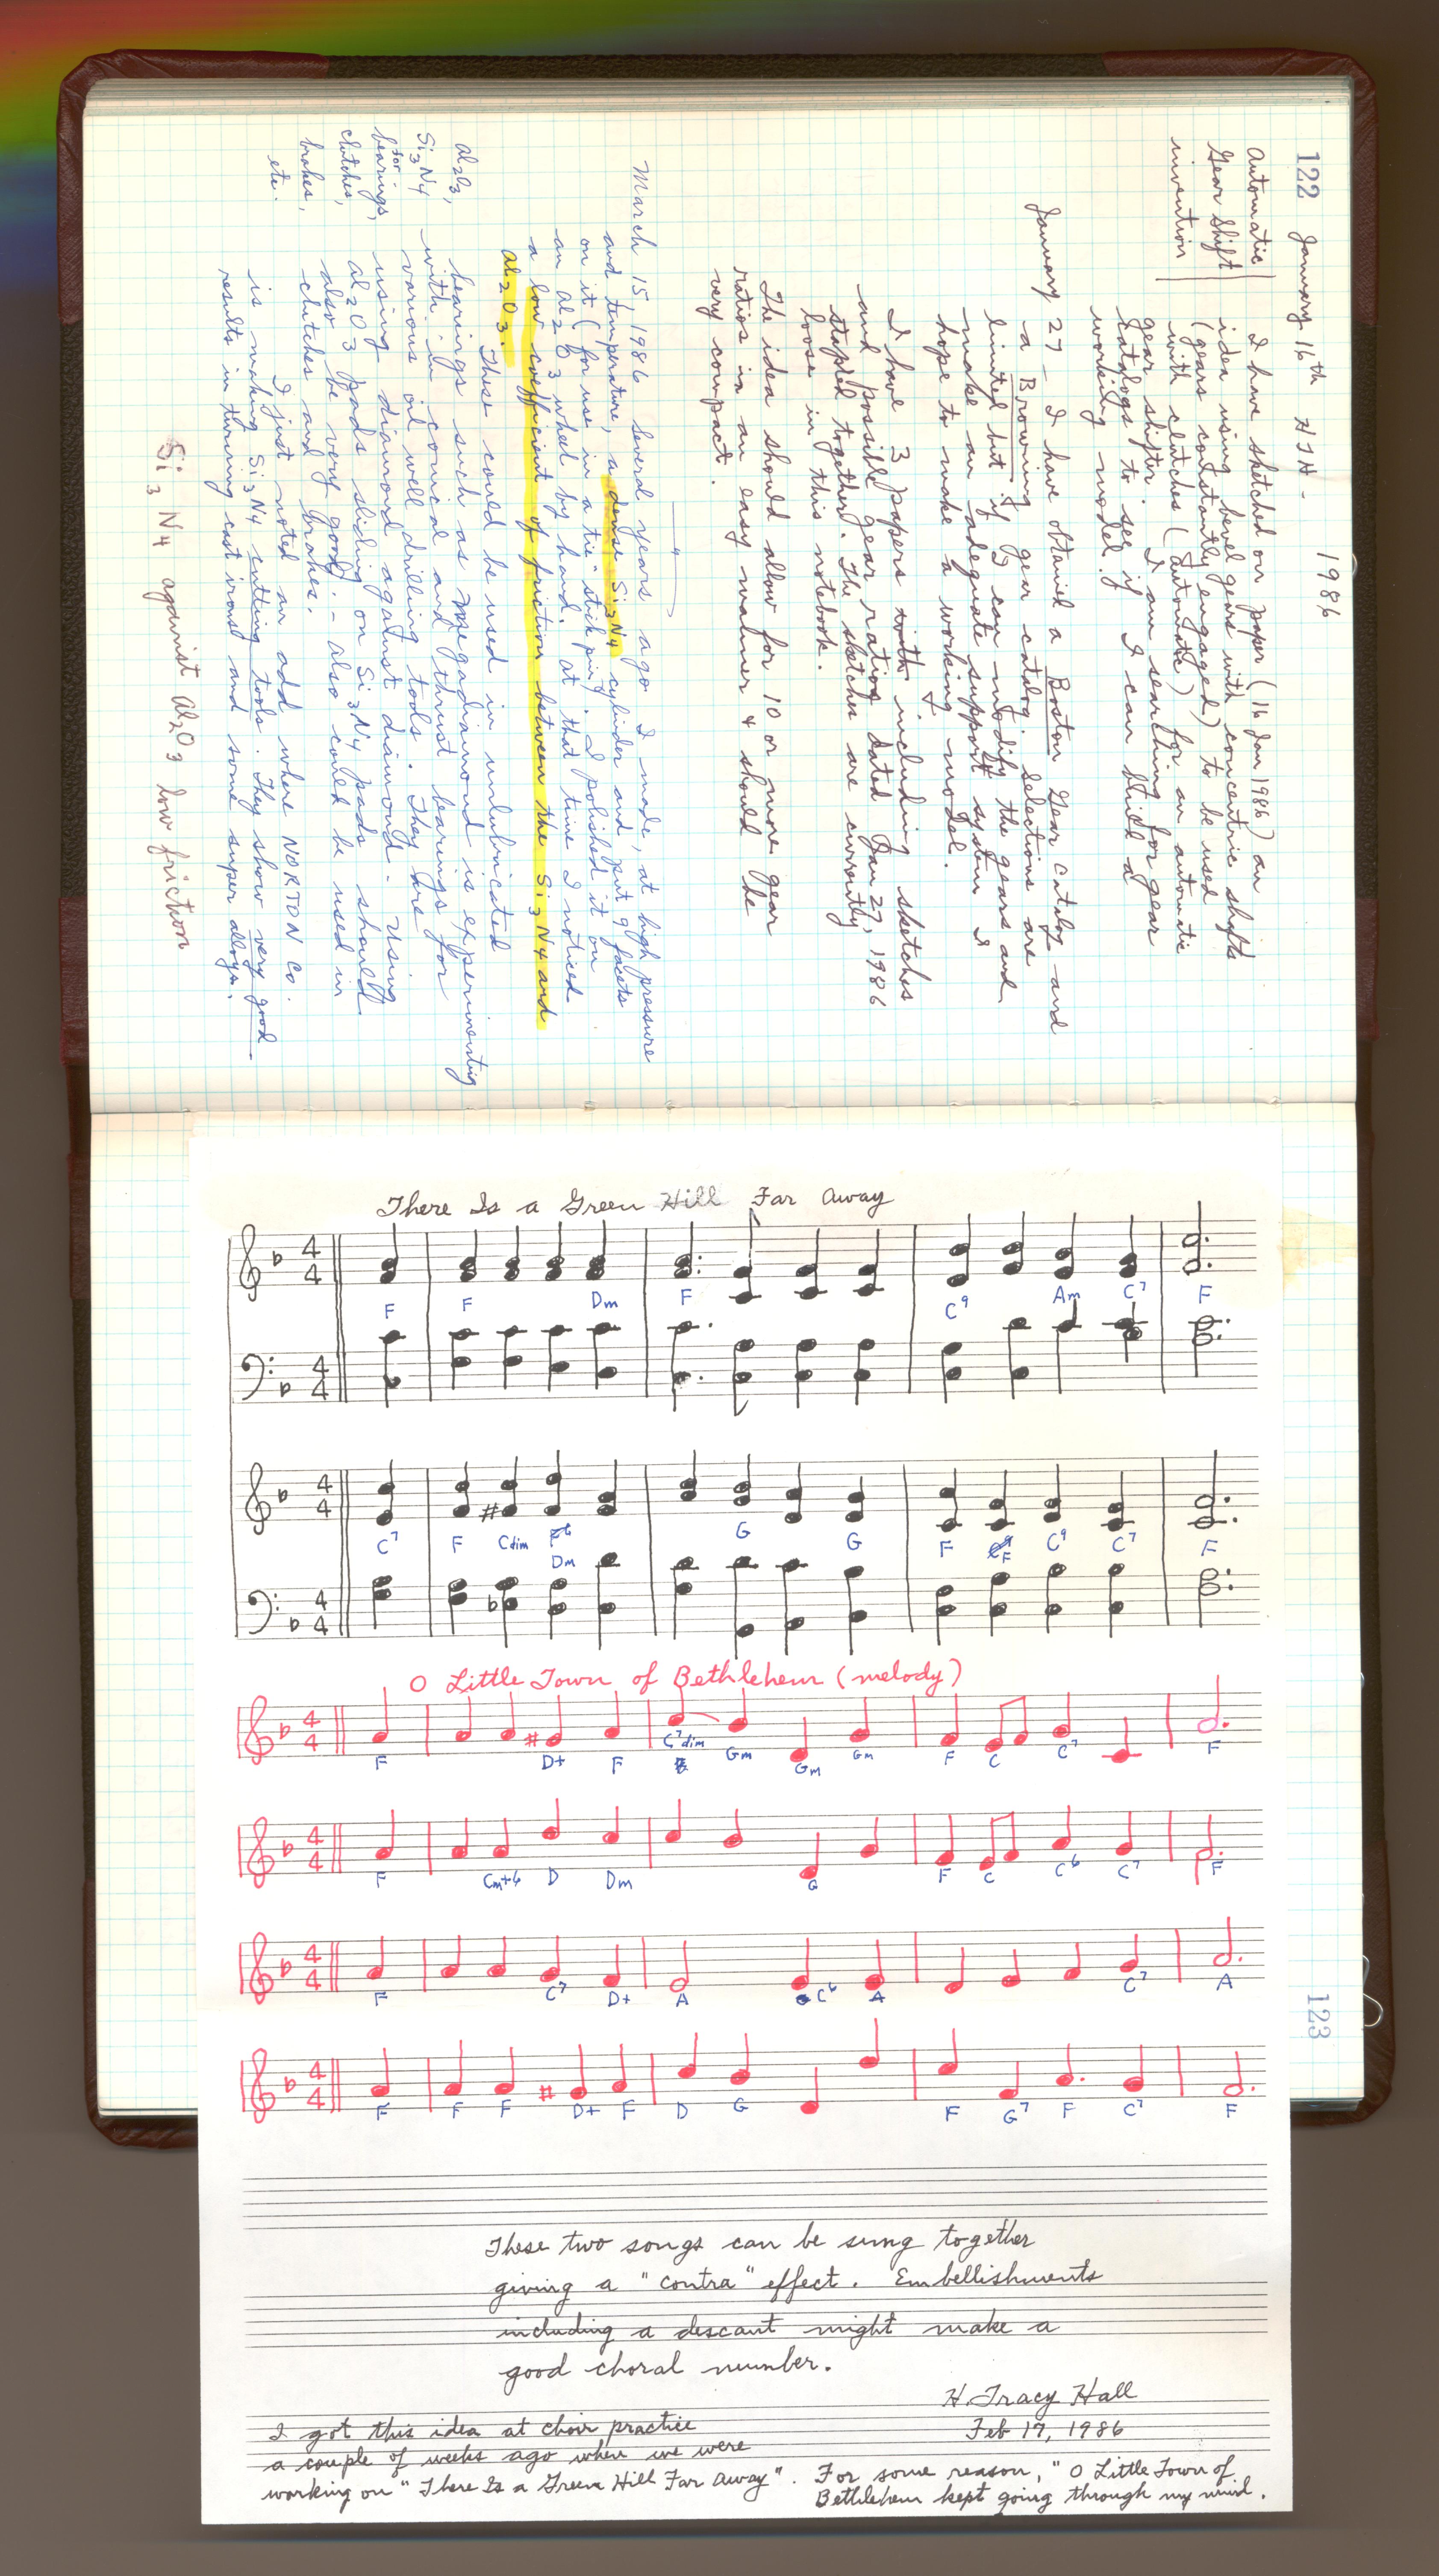 122 January 16th HTH - 1986
Automatic
Gear Shift
invention
I have sketched on paper (16 Jan 1986) an
idea using bevel gears with concentric shafts
(gears constantly engaged) to be used
with clutches (automatic) for an automatic
gear shifter. I am searching for gear
catalogs to see if I can build a
working model.
January 27 - I have obtained a Boston Gear catalog and
a Browning gear catalog. Selections are
limited but if I can modify the gears and
make an adequate support system I
hope to make a working model.
I have 3 papers with including sketches
and possible gear ratios dated Jan 27, 1986
stapled together. The sketches are currently
loose in this notebook.
The idea should allow for 10 or more gear
ratios in an easy manner & should be
very compact.
March 15, 1986 Several years ago I made, at high pressure
and temperature, a dense Si3N4 cylinder and put 9 facets
on it (for use in a tie "stick pin"). I polished it on
an Al2O3 wheel by hand. At that time I noticed
a low coefficient of friction between the Si3N4 and
Al2O3. These could be used in unlubricated
bearings such as Megadiamond is experimenting
with in conical and thrust bearings for
various oil well drilling tools. They are
using diamond against diamond. Using
Al2O3 pads sliding on Si3N4 pads should
also be very good. - Also could be used in
clutches and brakes.
Al2O3,
Si3N4
for
bearings,
clutches,
brakes,
etc.
I just noted an add where NORTON Co.
is making Si3N4 cutting tools. They show very good
results in turning cast irons and some super alloys.
Si3N4 against Al2O3 low friction
There Is a Green Hill Far Away
4 4
F F Dm F C9 Am C7 F
4 4
4 4
C7 F Cdim Dm G G F F C9 C7 F
4 4
O Little Town of Bethlehem (melody)
4 4
F D+ F C7dim Gm Gm Gm F C C7 F
4 4
F Cm+6 D Dm G F C C6 C7 F
4 4
F C7 D+ A C6 A C7 A
4 4
F F F D+ F D G F G7 F C7 F
123
These two songs can be sung together
giving a "contra" effect. Embellishments
including a descant might make a
good choral number.
H. Tracy Hall
Feb 17, 1986
I got this idea at choir practice
a couple of weeks ago when we were
working on "There Is a Green Hill Far Away". For some reason, "O Little Town of
Bethlehem kept going through my mind.